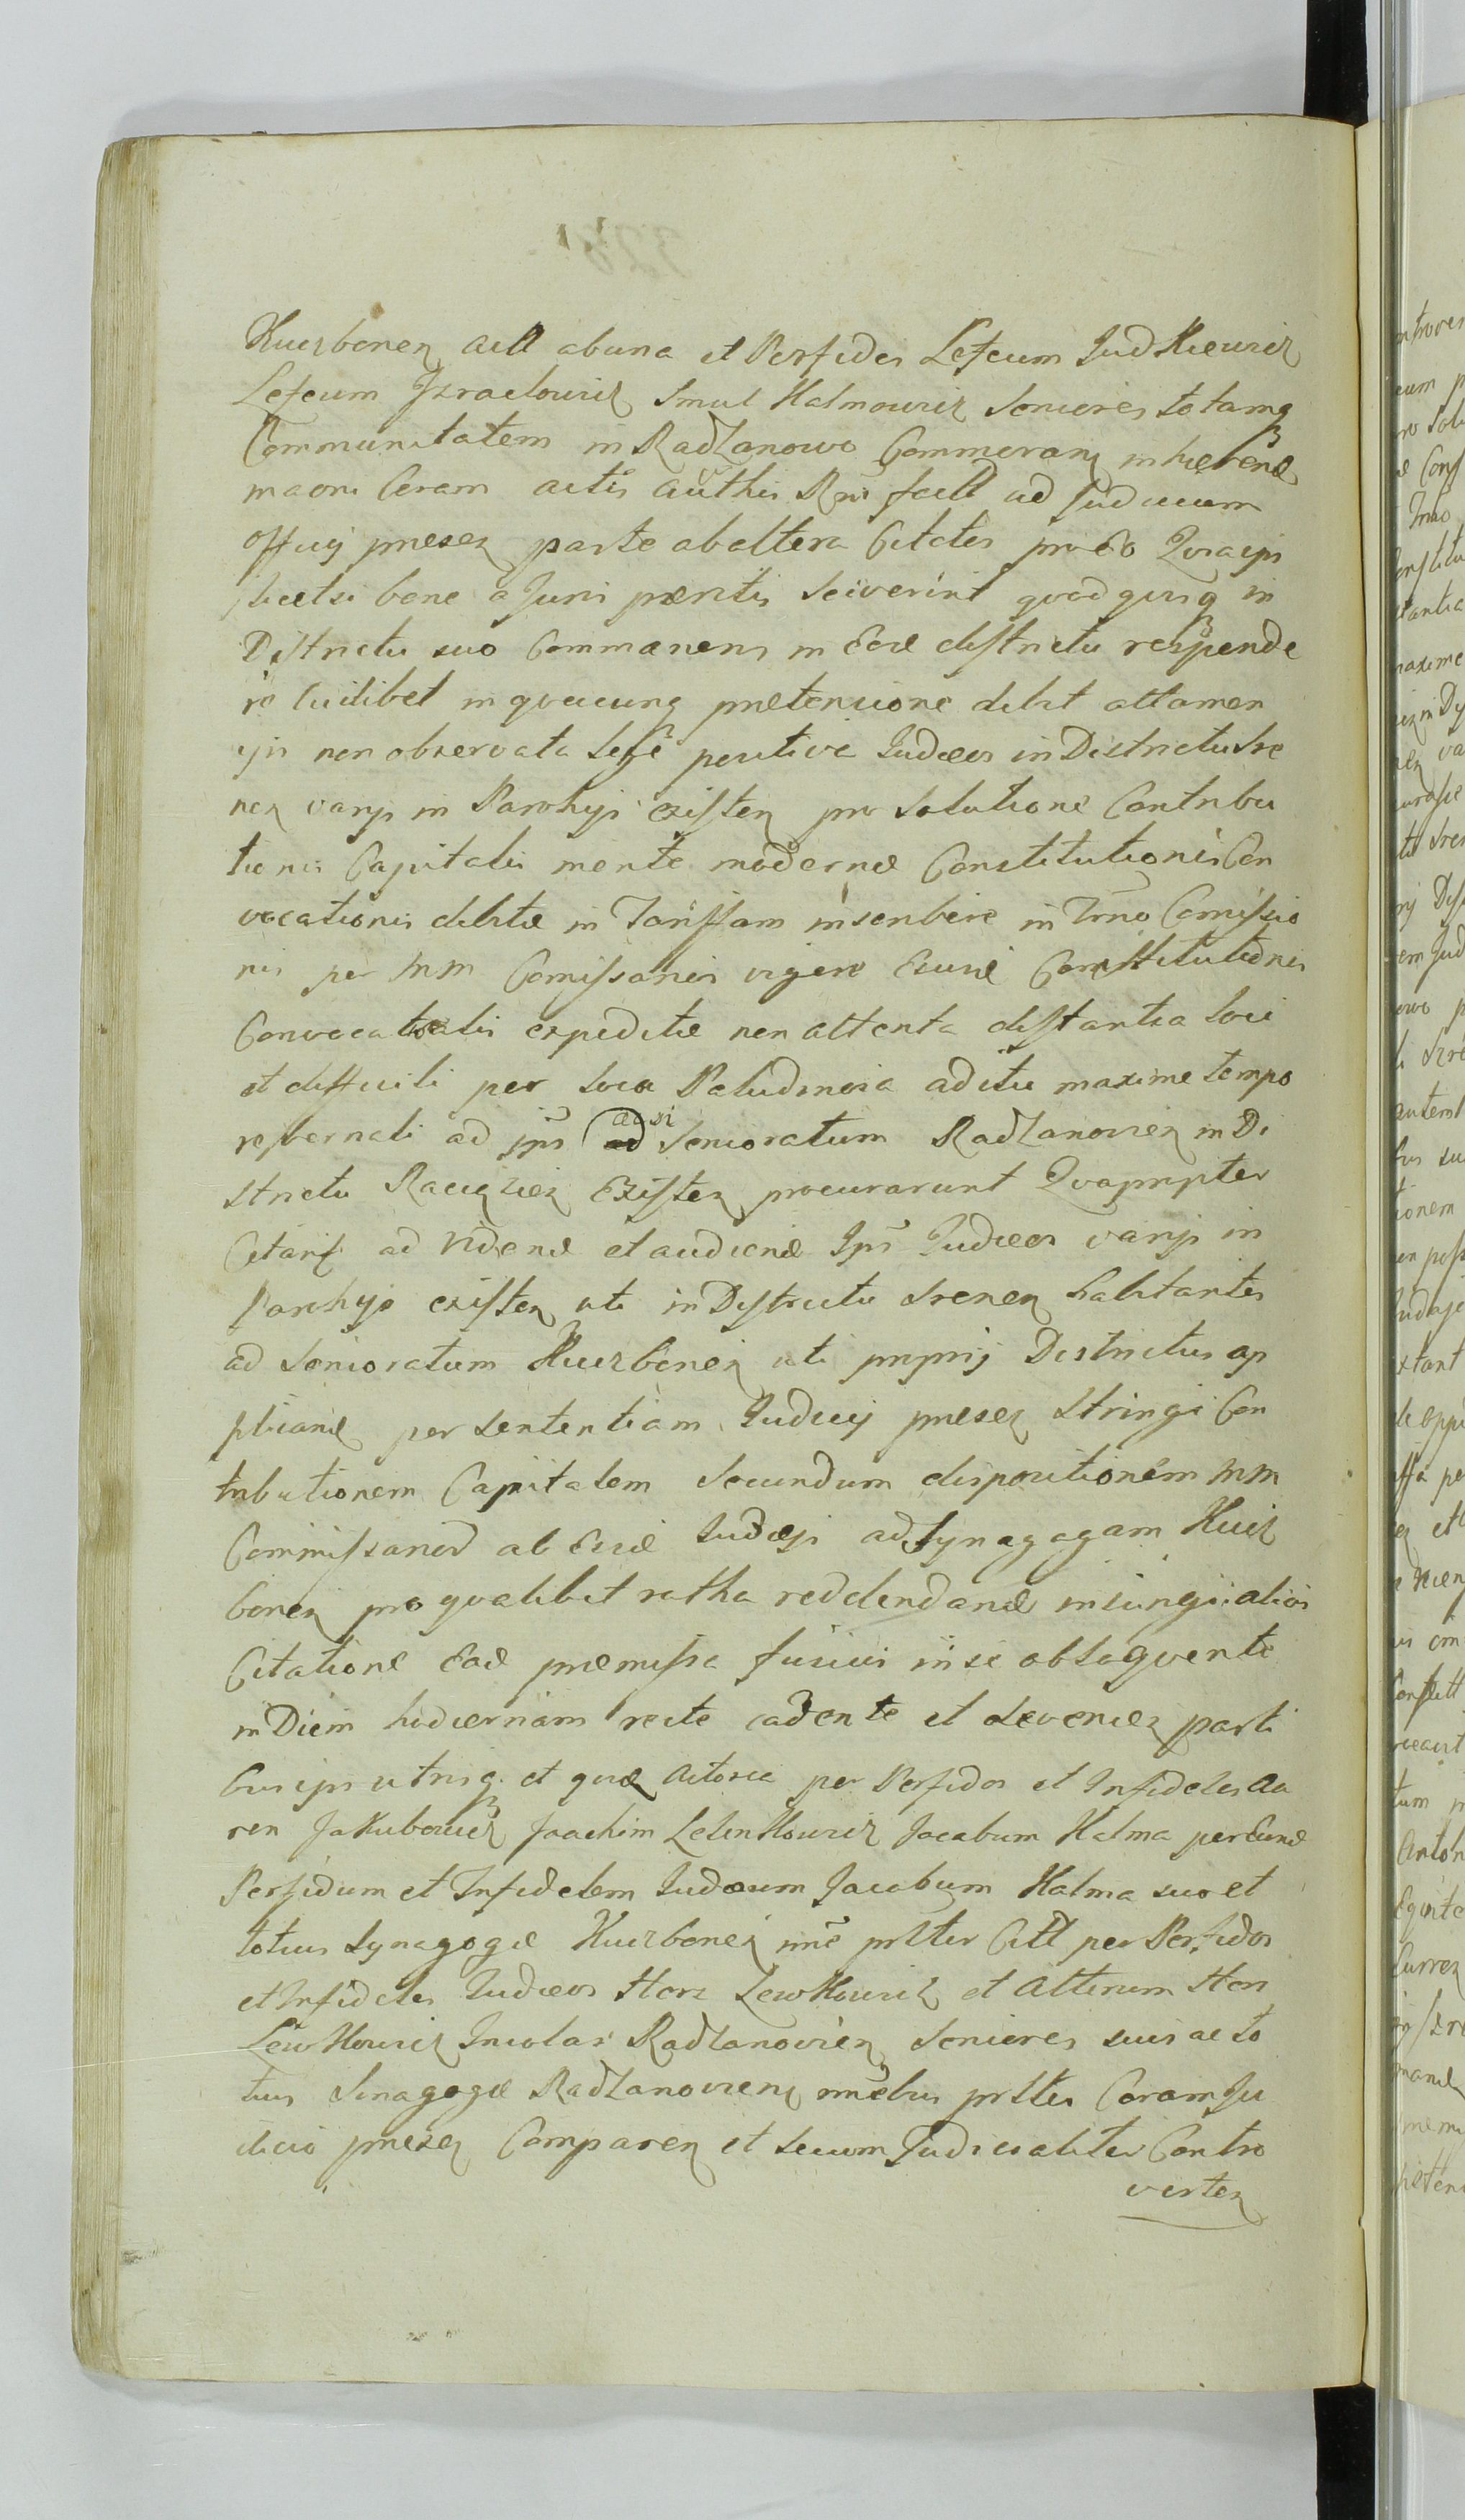 Kuczbonen actt ab una et Perfidos Leycum Jud Kiewicz
Leycum Jzraelowicz Smul Halmowicz Seniores totamq
Communitatem in Radzanowo Commoran inhærend
Coram actis Authis Rnis factt ad Judicium
Officij præsen parte ab altera Citatos pro eo Quia ipsi
licet si bene a Juris præntis sciverint quod quisq in
Districtu suo Commanens in Eod districtu responde
re cuilibet in quacunq prætensione debet attamen
ijs non observata Lege positiva Judæos in Districtu Sre
nen varijs in Parohijs existen pro Solutione Contribu
tionis Capitalis mente modernæ Constitutionis Con
vocationis debitæ in Tariffam inscribere in Trno Comissio
nis per MM Comissarios vigore Ejusd Constitutionis
Convocationalis expeditæ non attenta distantia loci
et difficili per loca Paludinosa aditu maxime tempo
re vernali ad ipsos ac si Senioratum Radzanovien in Di
strictu Raciązien Existen procurarunt Quapropter
Citari ad Vidend et audiend Ipsos Judæos varijs in
Parohijs existen uti in Districtu Srenen habitantes
ad Senioratum Kuczbonen uti proprij Districtus ap
plicand per Sententiam Judicij præsen Stringi Con
tributionem Capitalem Secundum dispositionem MM
Commissariod ab Eisd Judæis ad Synagogam Kucz
bonen pro qualibet ratha reddendand injungi alias
Citatione Ead præmissa fusius in se obloquente
in Diem hodiernam recte cadente et devenien parti
bus ipsis utrisq et quid Actorea per Perfidos et Infideles Aa
ron Jakubowicz Joachim Lelenkowicz Jacobum Halma per Eund
Perfidum et Infidelem Judæum Jacobum Halma suo et
totius Synagogæ Kuczbonen nne prltter Citt per Perfidos
et Infideles Judæos Herz Lewkowicz et Alterum Hers
Lewkowicz Incolas Radzanovien Seniores suis ac to
tius Sinagogæ Radzanovien nnebus prltter Coram Ju
dicio præsen Comparen et Secum Judicialiter Contro
verten